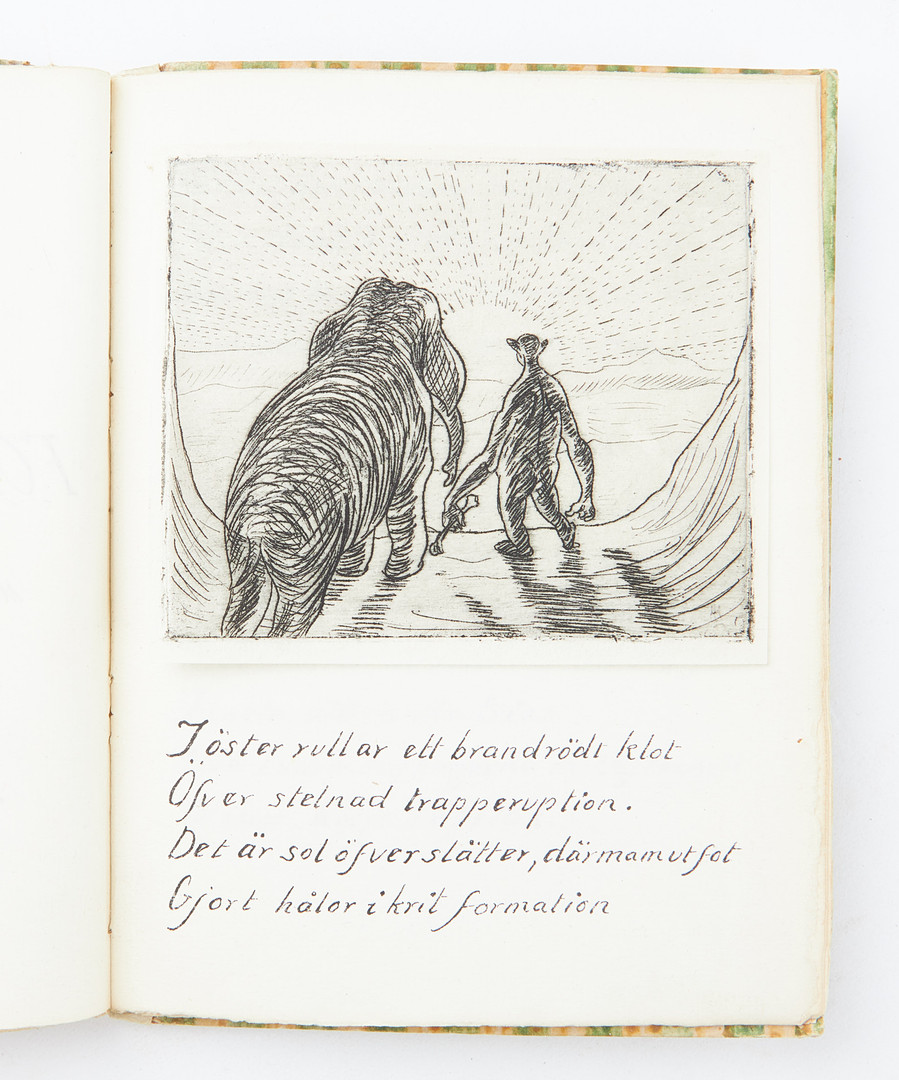 I öster rullar ett brandrödt klot
Öfver stelnad trapperuption.
Det är sol öfver slätter, där mamutfot
Gjort hålor i krit formation